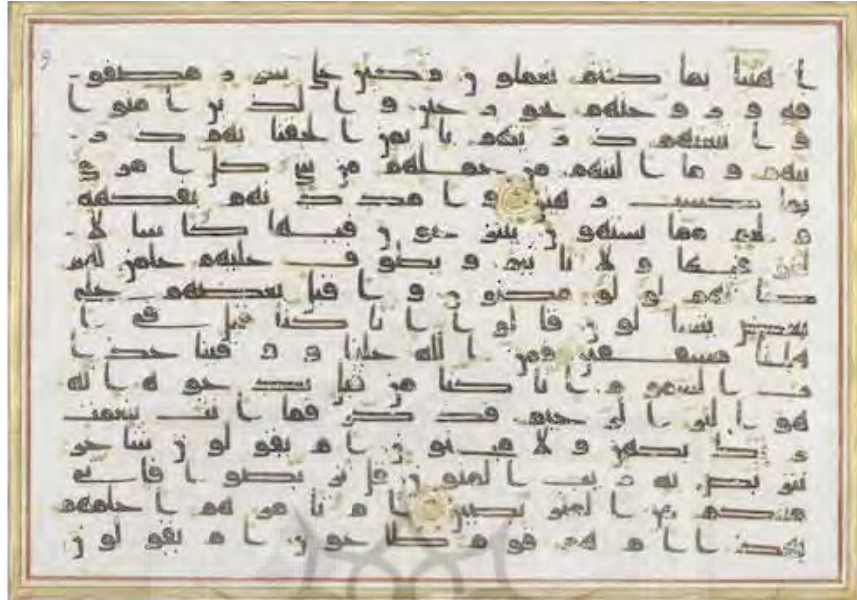 ا هنيا بما كنتم تعملون متكين على سرر مصفو
فة وزوجنهم بحور عين والذين امنوا
واتبعتهم ذريتهم بايمن الحقنا بهم ذر
يتهم وما التنهم من عملهم من شي كل امرى
بما كسب رهين وامددنهم بفكهة
و لحم مما يشتهون يتنزعون فيها كاسا لا
لغو فيها ولا تاثيم ويطوف عليهم غلمن لهم
كانهم لولو مكنون واقبل بعضهم على
بعض يتسالون قالوا انا كنا قبل في ا
هلنا مشفقين فمن الله علينا ووقينا عذا
ب السموم انا كنا من قبل ندعوه انه
هو البر الرحيم فذكر فما انت بنعمت
ربك بكهن ولا مجنون ام يقولون شاعر
نتربص به ريب المنون قل تربصوا فاني
معكم من المتربصين ام تامرهم احلمهم
بهذا ام هم قوم طاغون ام يقولون